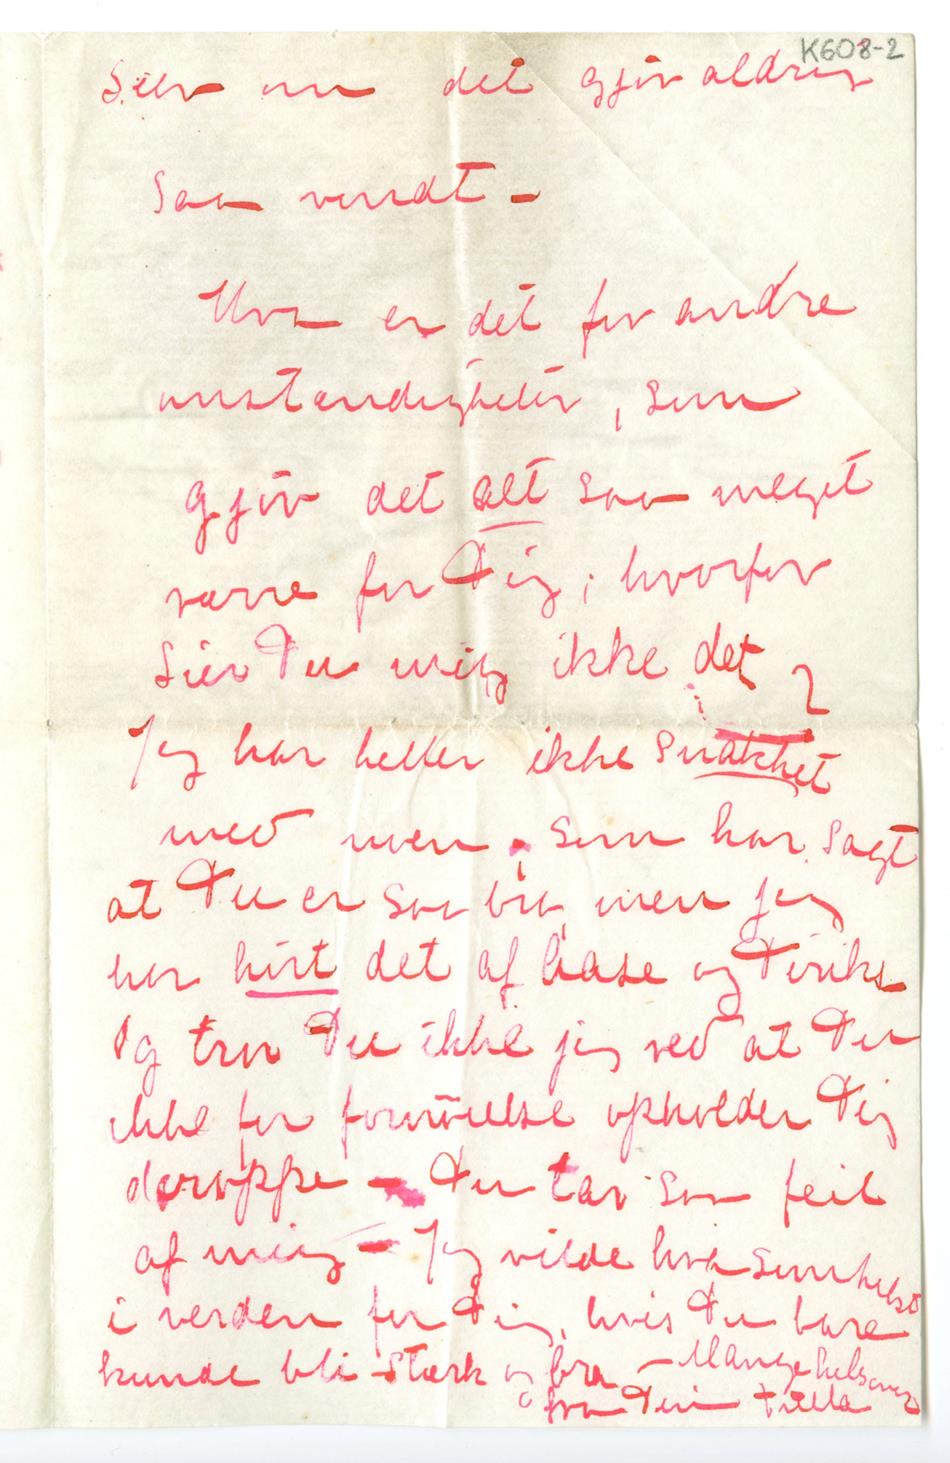 K608-2
Sielv om det gjør aldrig
saa vondt –
Hva er det for andre
omstændigheter, som
gjør det alt saa meget
værre for Dig; hvorfor
sier Du mig ikke det?
Jeg har heller ikke snakket
med noen, som har sagt
at Du er saa bra, men jeg
har hørt det af Aase og
Og tror Du ikke jeg ved at Du
ikke for fornøielse opholder Dig
deroppe – Du tar saa feil
af mig – Jeg vilde hva somhelst
i verden for Dig, hvis Du bare
kunde bli stærk og bra – Mange helsener
fra Din Tulla